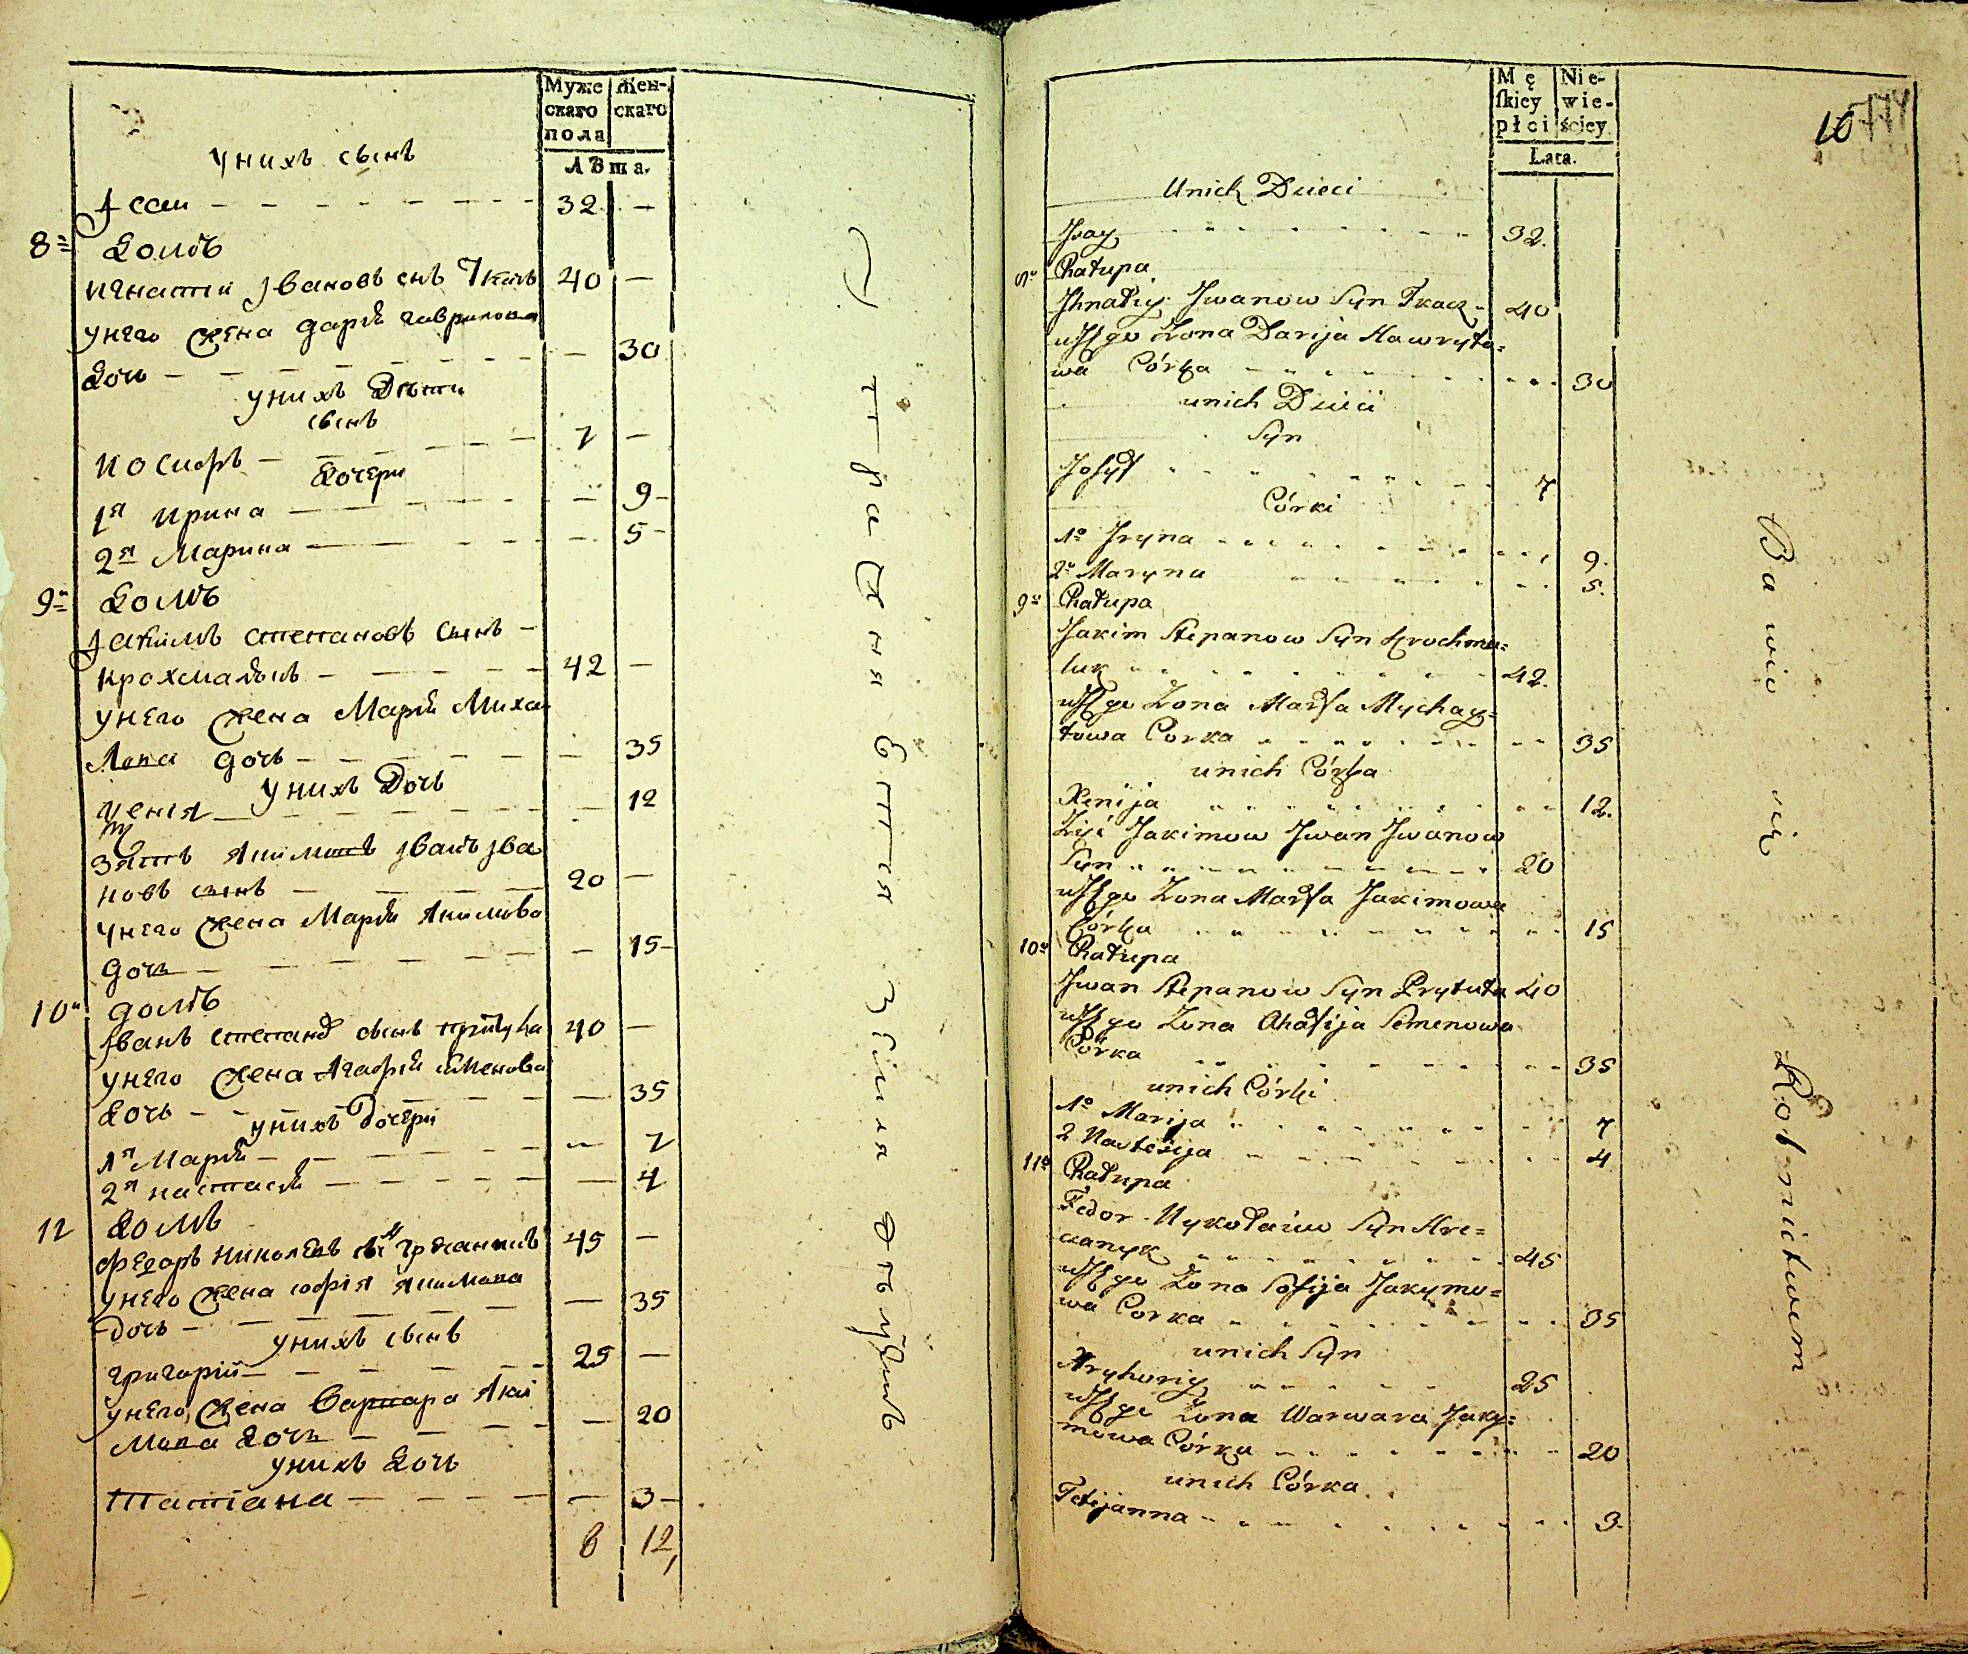 Муже
скаго
пола
Жен-
скаго
Лѣта.
у нихъ сынъ
Ісаи — — — — 32 —
8 Домъ
Игнатій Івановъ снъ Ткачъ 40 —
у него жена Дарія Гаврилова
дочь — — — 30
у нихъ Дѣти
сынъ
Иосифъ — — 7 —
Дочери
1я Ирина — — — 9 —
2я Марина — — — 5 —
9 Домъ
Іакимъ Степановъ сынъ —
Крохмалюкъ — — 42 —
у него жена Марія Миха
лова дочь — — — 35
у нихъ Дочь
Ксенія — — — 12
Зять Якимовъ Іванъ Іва
новъ сынъ — — 20 —
у него жена Марія Якимова
дочь — — — 15 —
10 домъ
Іванъ Степановъ сынъ Притула 40 —
у него жена Агафія Семенова
дочь — — — 35
у нихъ Дочери
1я Марія — — — 7
2я Настасія — — — 4
12 Домъ
Федоръ Николаевъ сынъ Гречаникъ 45 —
у него жена Софія Якимова
дочь — — — 35
у нихъ сынъ
Григорій — — 25 —
у него жена Варвара Яки
мова дочь — — — 20
у нихъ дочь
Татіана — — — 3 —
8 12
упражняется землядѣлїемъ
Mę
ſkiey
płci
Nie-
wie-
ściey
Lata.
10
Unich Dzieci
Isay 32.
8o Chałupa
Ihnatiy Iwanow Syn Tkacz 40
u Jego Zona Darija Hawryło=
wa Córka 30
unich Dzieci
Syn
Josyf 7
Córki
1o Iryna 9.
2o Maryna 5.
9o Chałupa
Jakim Stepanow Syn Krochma=
luk 42.
u Jego Zona Marja Mychay=
łowa Corka 35
unich Córka
Xenija 12.
Zięć Jakimow Iwan Iwanow
Syn 20
u Jego Zona Marja Jakimowa
Córka 15
10o Chałupa
Iwan Stepanow Syn Prytuła 40
u Jego Zona Ahafija Semenowa
Córka 35
unich Córki
1o Marija 7
2 Nastesija 4
11o Chałupa
Fedor Mykołaiw Syn Hre=
czanyk 45
u Jego Zona Sofija Jakymo=
wa Corka 35
unich Syn
Hryhoriy 25
u Jego Zona Warwara Jaky=
mowa Córka 20
unich Córka
Tetijanna 3.
Bawio się Rolnictwem